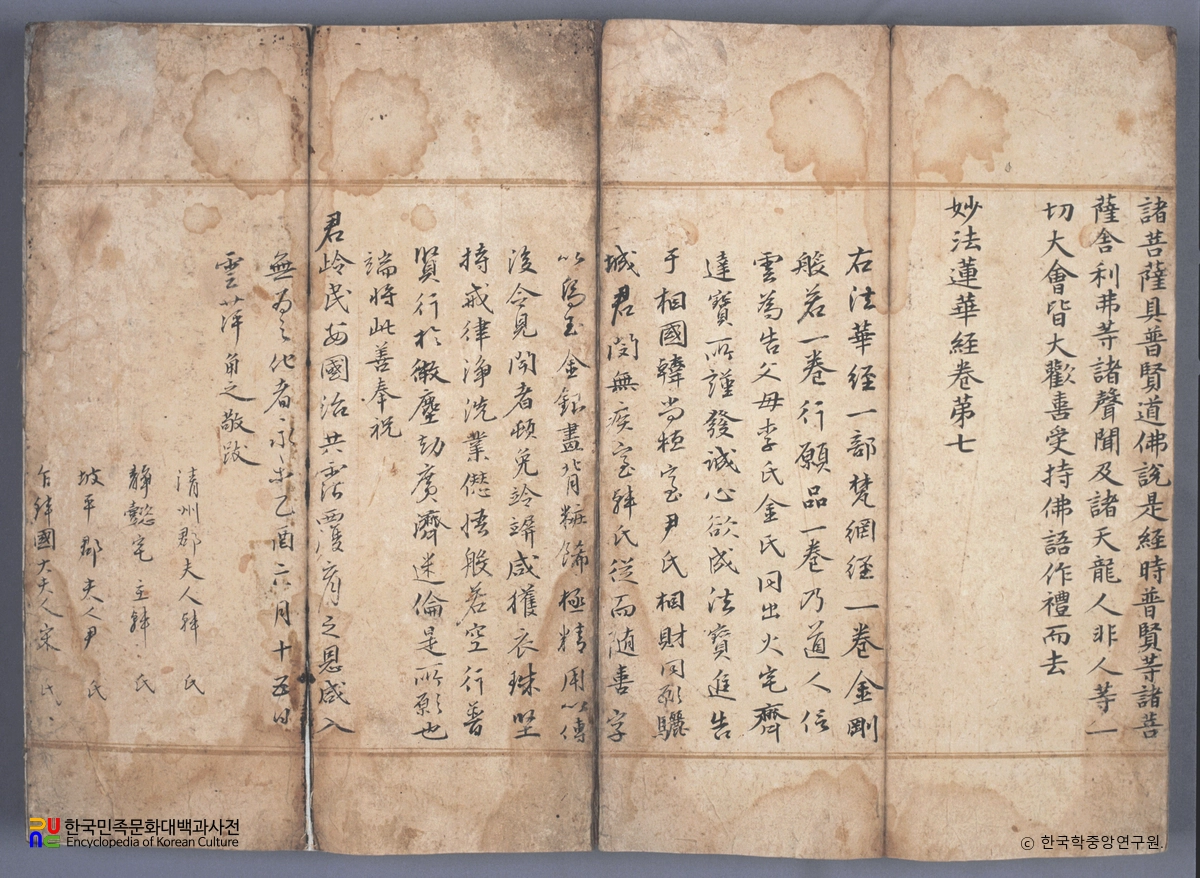 諸菩薩具普賢道佛說是經時普賢等諸菩
薩舍利弗等諸聲聞及諸天龍人非人等一
切大會皆大歡喜受持佛語作禮而去
妙法蓮華經卷第七
右法華經一部梵網經一卷金剛
般若一卷行願品一卷乃道人信
雲為告父母李氏金氏同出火宅齊
達寶所謹發誠心欲成法寶進告
于相國韓尚桓室尹氏相財同願驪
城君閔無疾室韓氏從而随喜字
以烏玉金銀畫背粧餙極精用以傳
後令見聞者頓免竛竮咸獲衣珠堅
持戒律淨洗業僁悟般若空行普
賢行於微塵劫廣濟迷倫是所願也
端將此善奉祝
君岭民安國治共霑覆育之恩咸入
無為之化者永樂乙酉六月十五日
雲萍角之敬跋
清州郡夫人韓 氏
靜懿宅主韓 氏
坡平郡夫人尹 氏
卞韓國大夫人宋 氏
한국민족문화대백과사전
Encyclopedia of Korean Culture
ⓒ 한국학중앙연구원.